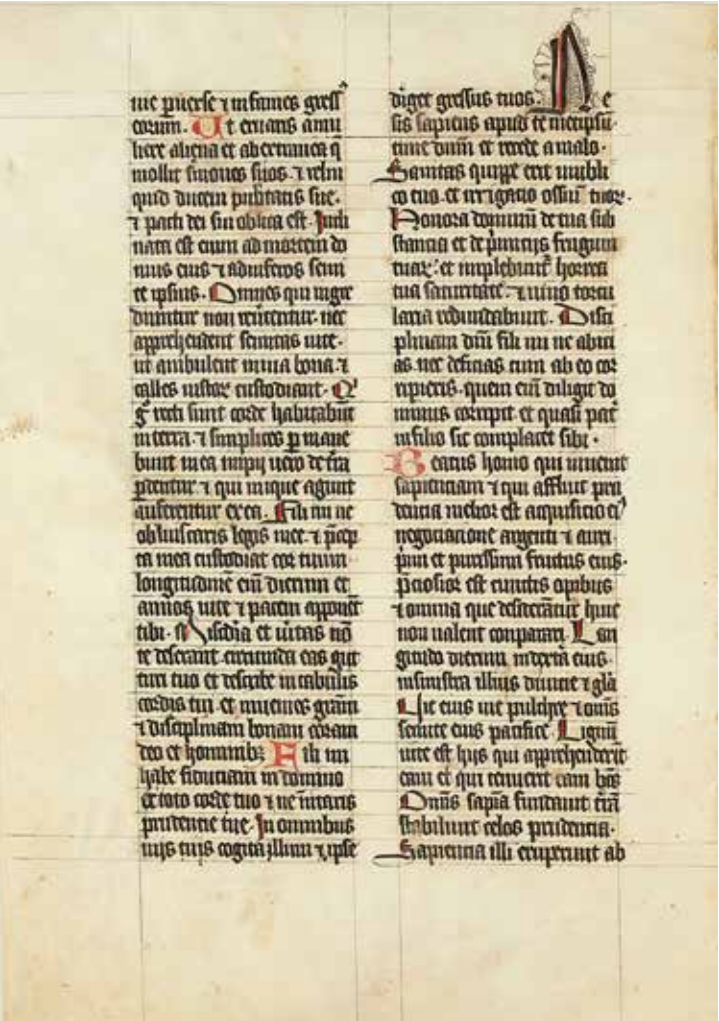 uie peruerse ⁊ infames gressꝰ
eorum. Ut eruaris a mu
liere aliena et ab extranea q̄
mollit sermones suos. ⁊ relin
quid ducem pubertatis sue.
⁊ pacti dei sui oblita est. Incli
nata est enim ad mortem do
mus eius ⁊ ad inferos semi
te ipsius. Omnes qui ingre
diuntur non reūtentur. nec
apprehendent semitas uite.
ut ambulent in uia bona. ⁊
calles iustoꝝ custodiant. Q'
g͛ recti sunt corde habitabūt
in terra. ⁊ simplices ꝑmane
bunt in ea impij uero de t͛ra
ꝑdentur ⁊ qui inique agunt
auferentur ex ea. Fili mi ne
obliuiscaris legis mee. ⁊ p̄cep
ta mea custodiat cor tuum
longitudinē em̄ dierum et
annos uite ⁊ pacem apponēt
tibi. Mis͛dia et ūitas nō
te deserant. circumda eas gut
turi tuo et describe in tabulis
cordis tui. et inuenies grām
⁊ disciplinam bonam coram
deo et hominibꝫ Fili mi
habe fiduciam in domino
ex toto corde tuo ⁊ ne initaris
prudentie tue. In omnibus
uijs tuis cogita illum ⁊ ipse
diriget gressus tuos. Ne
sis sapiens apud te metipsū.
time dn̄m et recede a malo.
Sanitas quippe erit umbili
co tuo. et irrigatio ossiū tuoꝝ.
Honora dominum de tua sub
stancia et de p͛micijs frugum
tuaꝝ. et implebūt͛ horrea
tua saturitate. ⁊ uino torcu
laria redundabunt. Disci
plinam dn̄i fili mi ne abici
as. nec deficias cum ab eo cor
ripieris. quem em̄ diligit do
minus corripit et quasi pat͛
in filio sic complacet sibi.
Beatus homo qui inuenit
sapienciam ⁊ qui affluit pru
dencia melior est acquisicio eiꝰ
negociacione argenti ⁊ auri
p͛mi et purissimi fructus eius.
p̄ciosior est cunctis opibus
⁊ omnia que desiderāntur huic
non ualent conparari. Lon
gitudo dierum in dextra eius.
in sinistra illius diuicie ⁊ glā
Uie eius uie pulchre ⁊ omīs
semite eius pacifice. Lignū
uite est hijs qui apprehenderīt
eam et qui tenuerit eam bt̄s
Dn̄us sapiā fundauit t͛rā
stabiliuit celos prudencia.
Sapiencia illi eruperunt ab